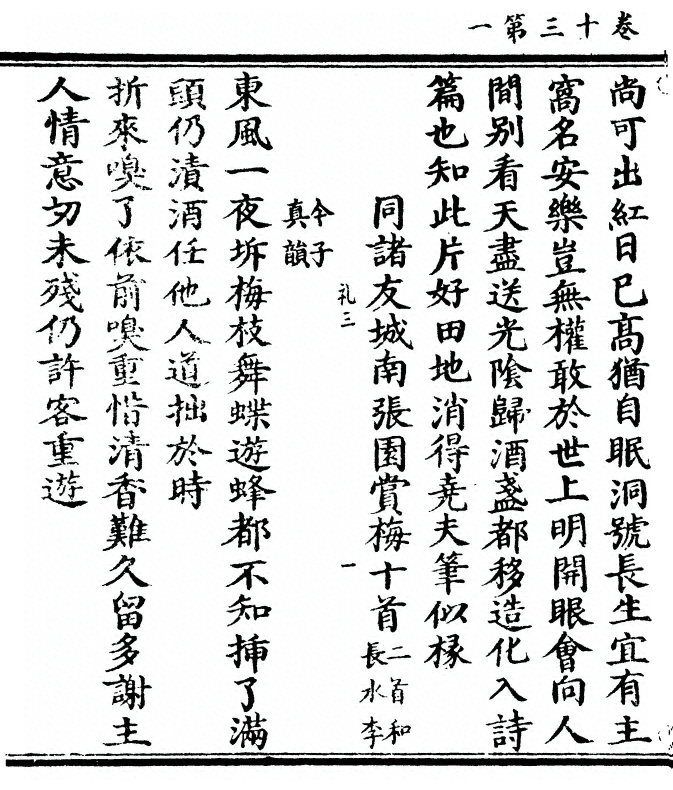 卷十三第一
尚可出紅日已高猶自眠洞號長生宜有主
窩名安樂豈無權敢於世上明開眼會向人
間別看天盡送光陰歸酒盞都移造化入詩
篇也知此片好田地消得堯夫筆似椽
同諸友城南張園賞梅十首
二首和
長水李
令子
真韻
礼三
一
東風一夜坼梅枝舞蝶遊蜂都不知插了滿
頭仍漬酒任他人道拙於時
折來嗅了依前嗅重惜清香難久留多謝主
人情意切未殘仍許客重遊